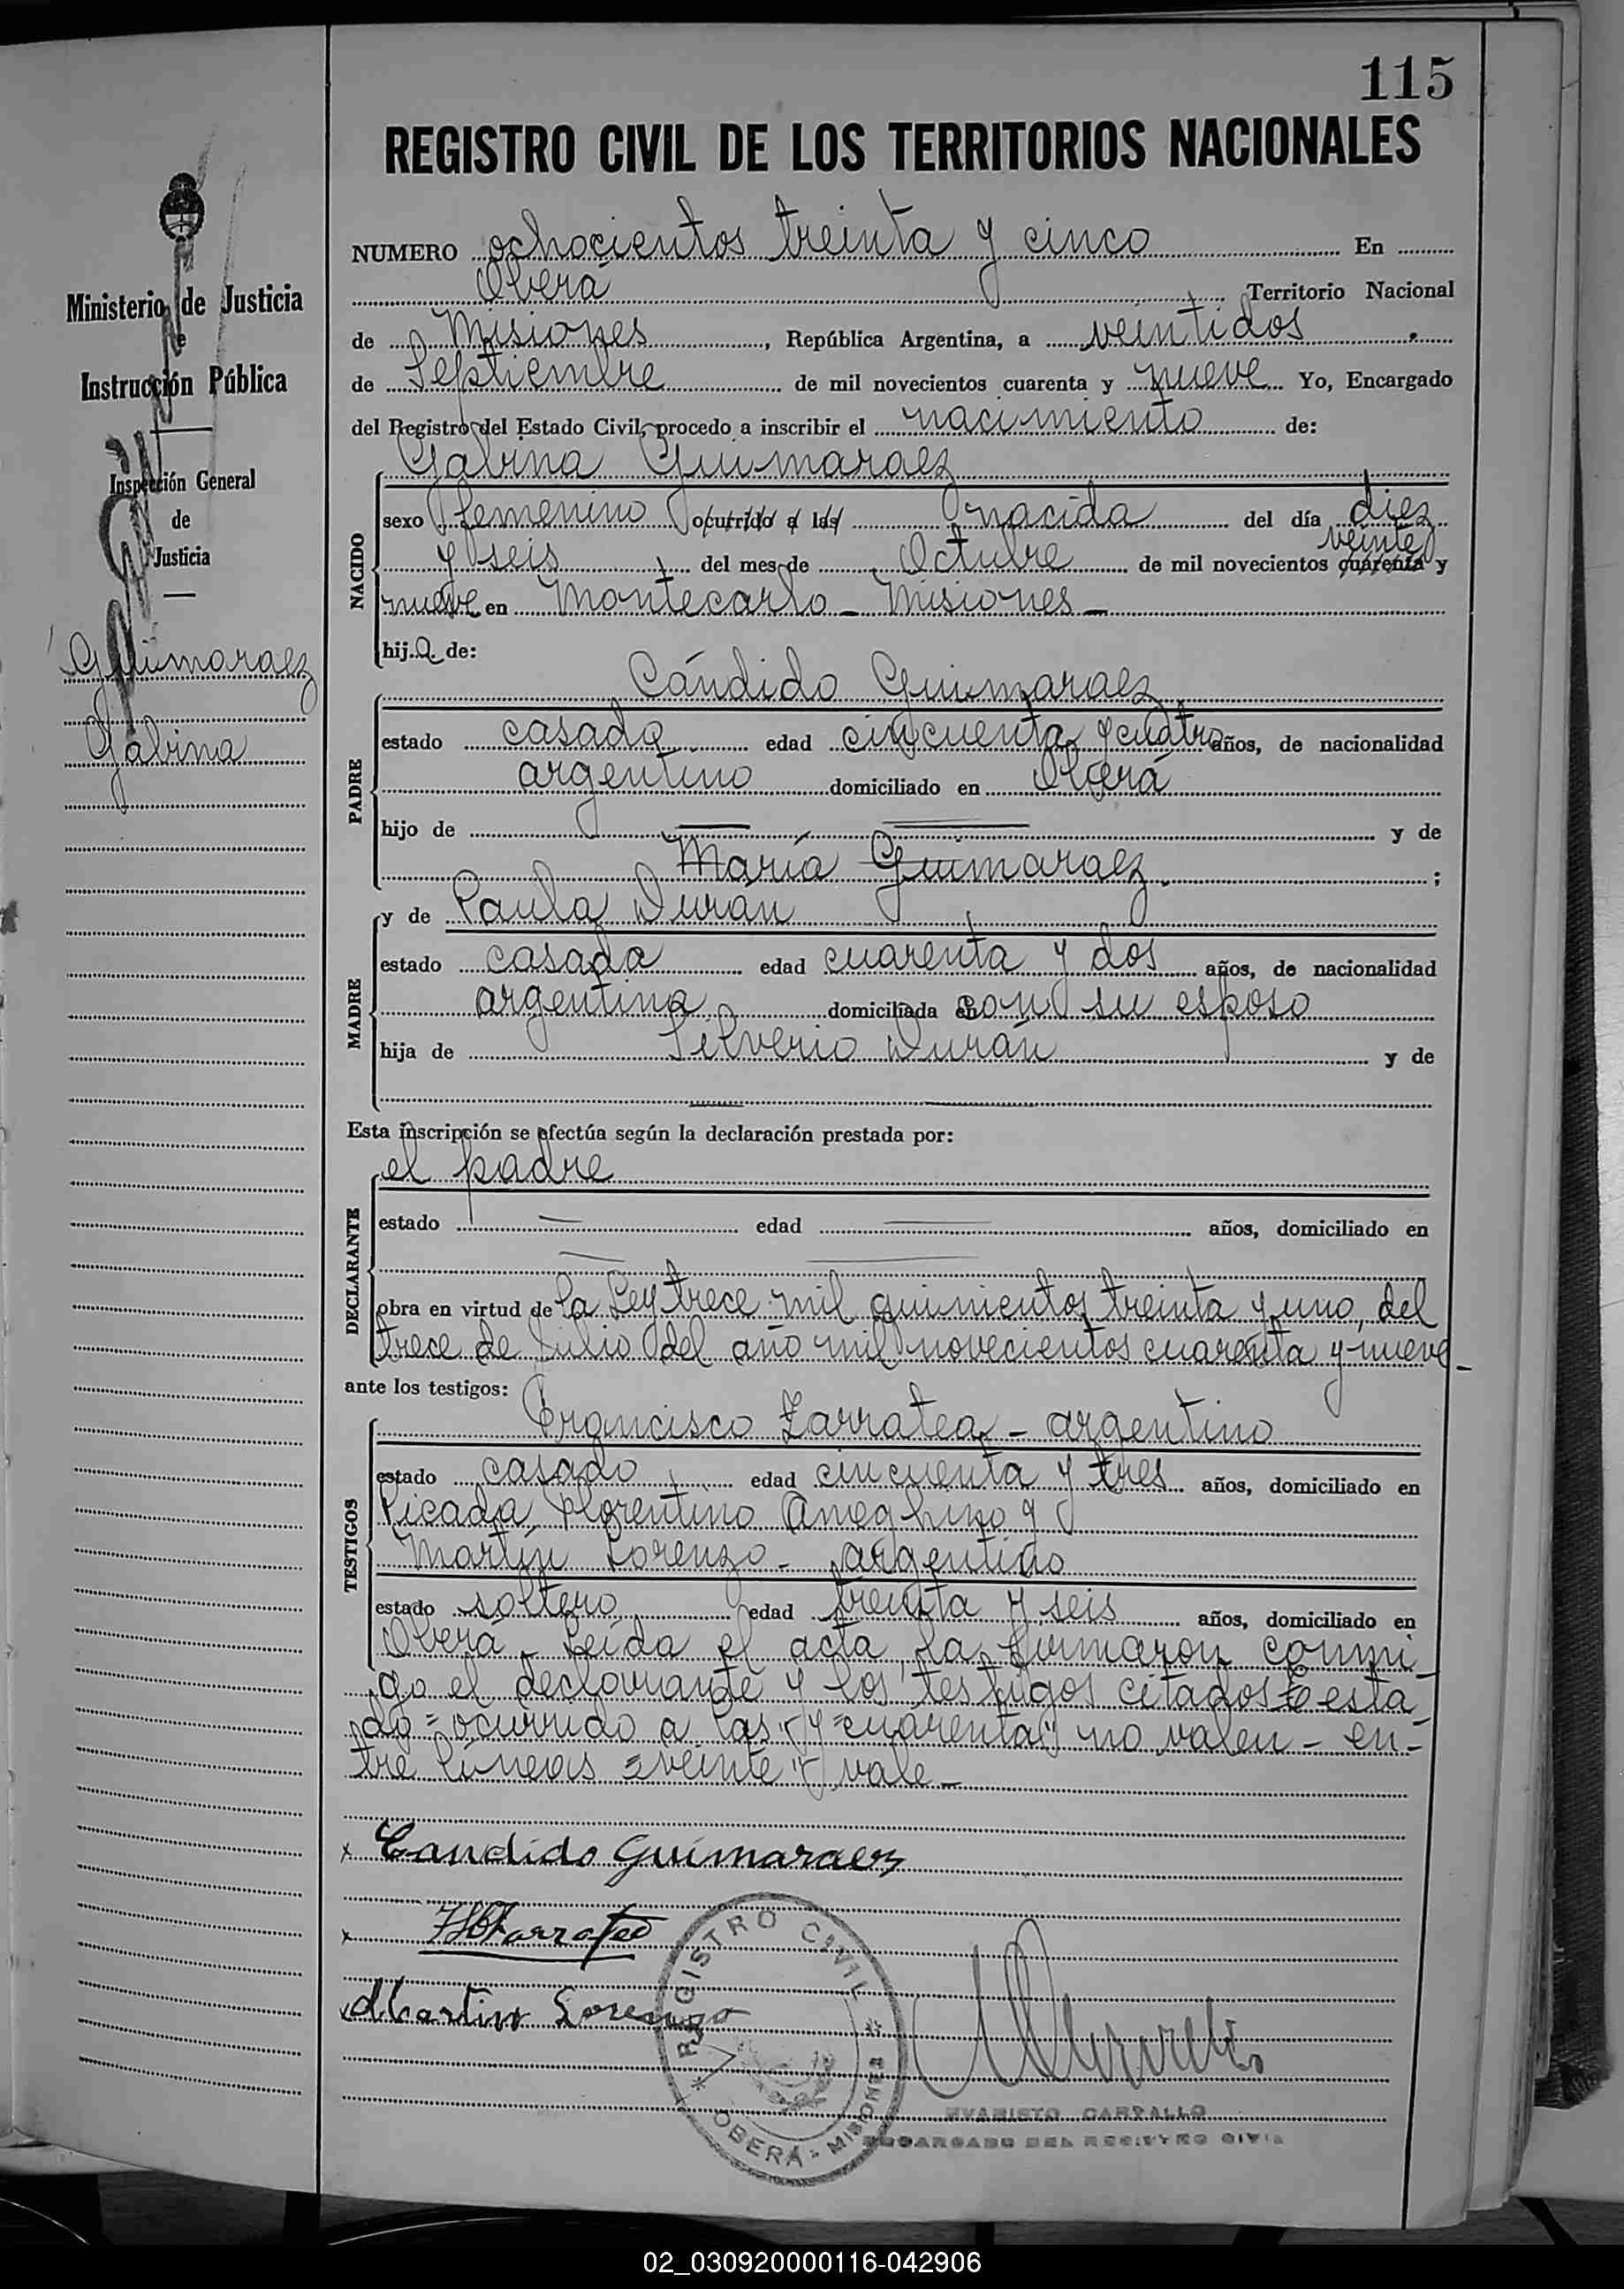 115
REGISTRO CIVIL DE LOS TERRITORIOS NACIONALES
Ministerio de Justicia
e
Instrucción Pública
Inspección General
de
Justicia
Guimaraez
Gabina
NUMERO ochocientos treinta y cinco En
Oberá Territorio Nacional
de Misiones, República Argentina, a veintidos
de Septiembre de mil novecientos cuarenta y nueve Yo, Encargado
del Registro del Estado Civil, procedo a inscribir el nacimiento de:
Gabina Guimaraez
NACIDO
sexo femenino ocurrido a las nacida del día diez
y seis del mes de Octubre de mil novecientos cuarenta veinte y
nueve en Montecarlo - Misiones -
hija de:
PADRE
Cándido Guimaraez
estado casado edad cincuenta y cuatro años, de nacionalidad
argentino domiciliado en Oberá
hijo de y de
María Guimaraez ;
MADRE
y de Paula Durán
estado casada edad cuarenta y dos años, de nacionalidad
argentina domiciliada con su esposo
hija de Silverio Durán y de
Esta inscripción se efectúa según la declaración prestada por:
DECLARANTE
el padre
estado edad años, domiciliado en
obra en virtud de la Ley trece mil quinientos treinta y uno, del
trece de Julio del año mil novecientos cuarenta y nueve -
ante los testigos:
TESTIGOS
Francisco Zarratea - argentino
estado casado edad cincuenta y tres años, domiciliado en
Picada Florentino Ameghino y
Martín Lorenzo - argentino
estado soltero edad treinta y seis años, domiciliado en
Oberá - Leída el acta, la firmaron conmi-
go el declarante y los testigos citados esta
do = ocurrido a las y cuarenta no valen - en-
tre líneas = veinte vale -
x Candido Guimaraez
x Zarratea
x Martin Lorenzo
REGISTRO CIVIL
OBERÁ - MISIONES
EVARISTO CARVALLO
ENCARGADO DEL REGISTRO CIVIL
02_030920000116-042906